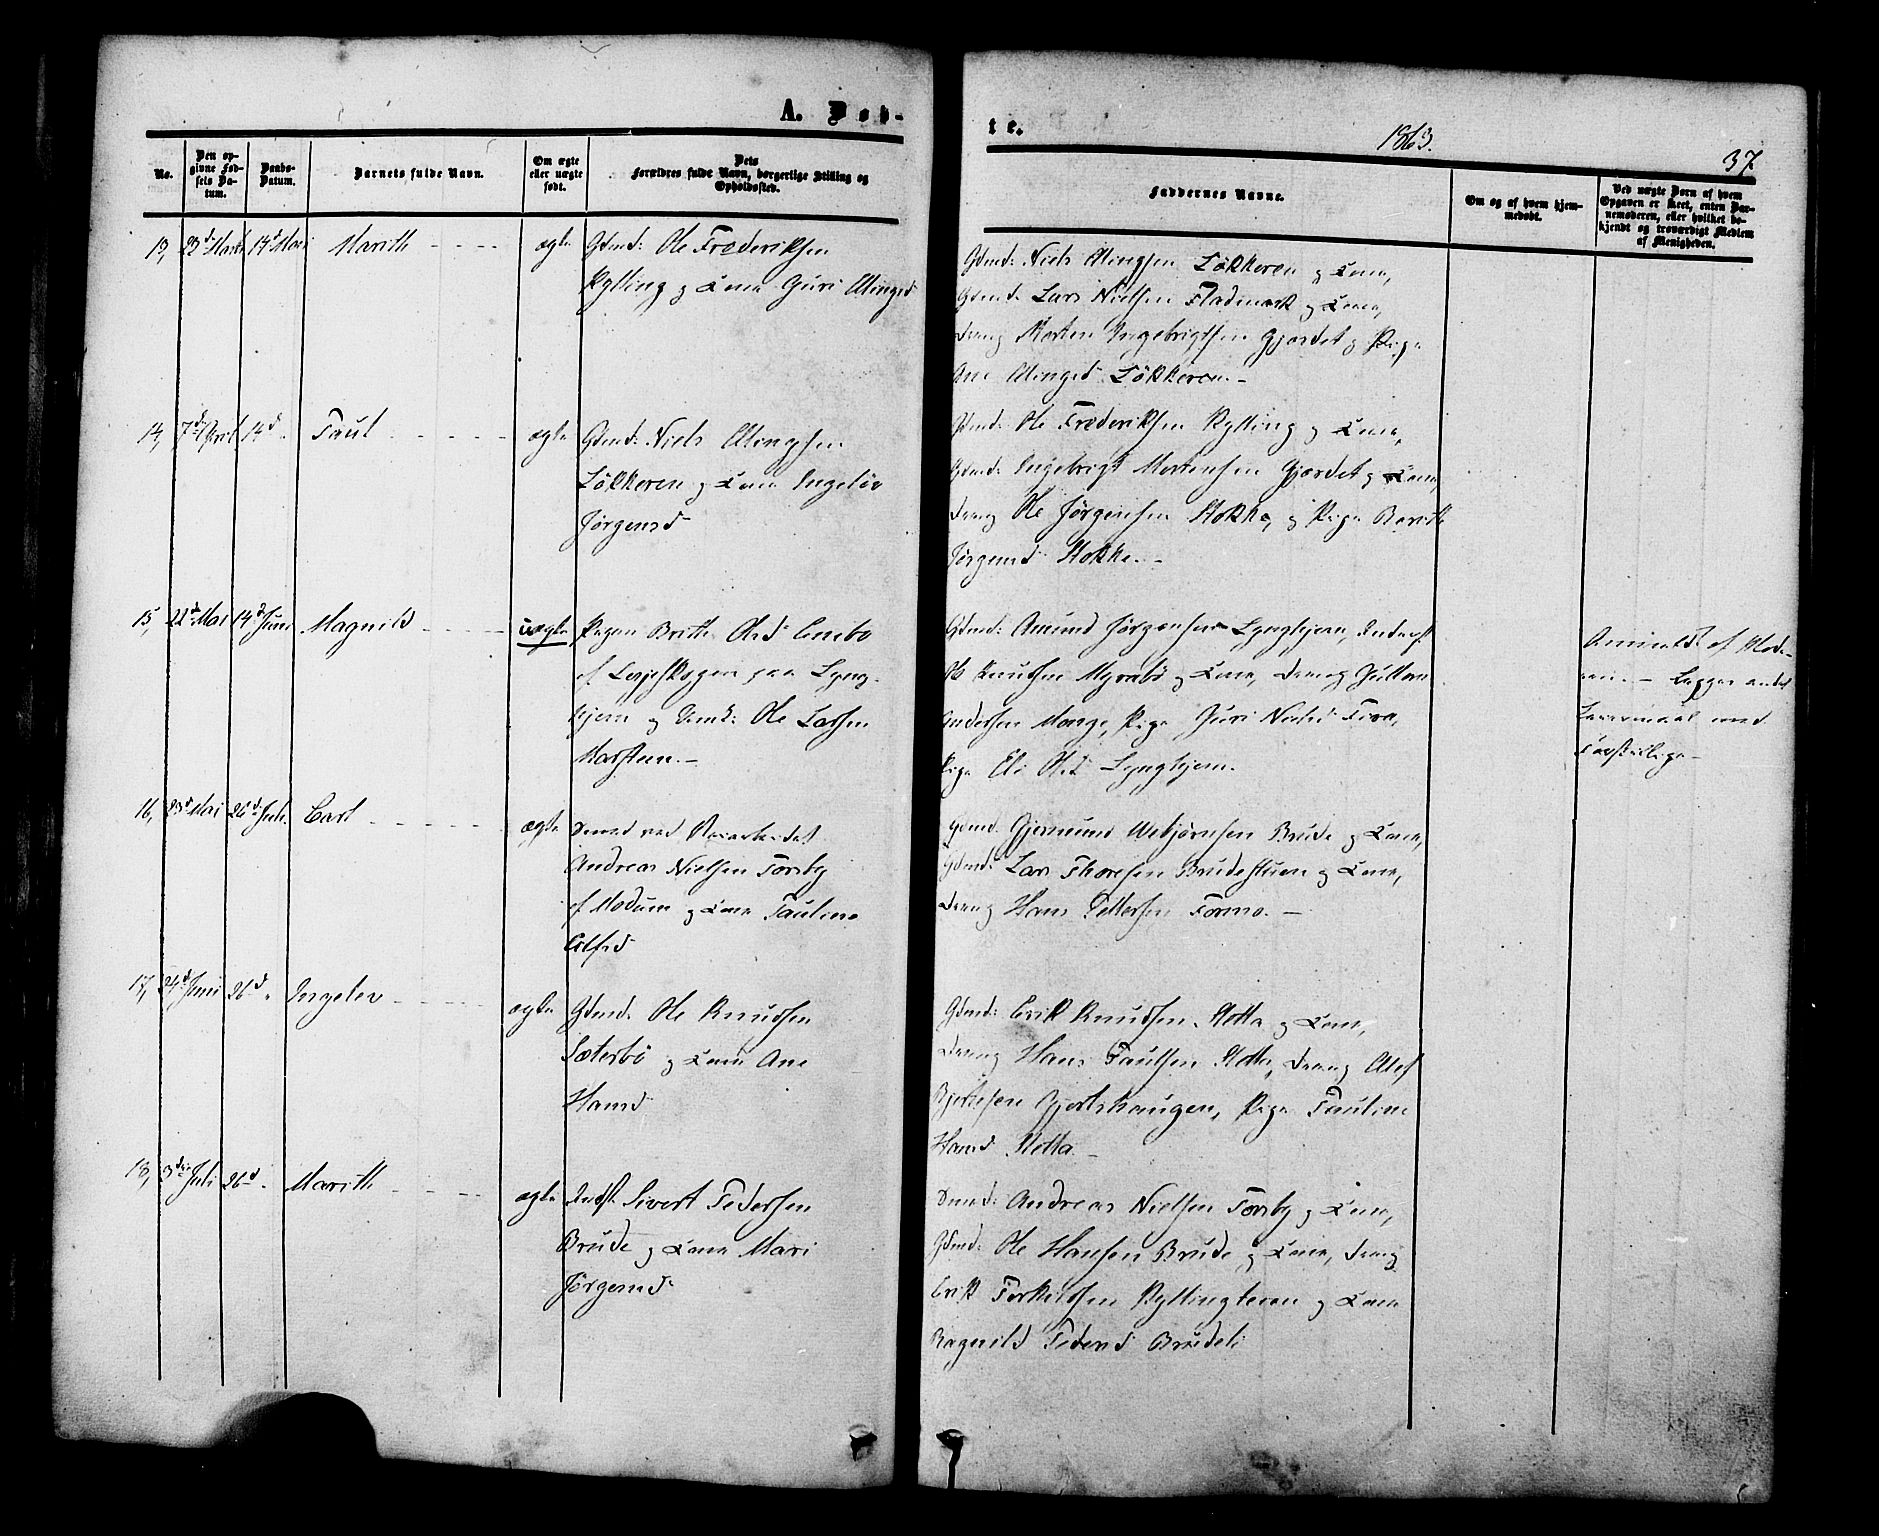 A. Døb-
No.
Den op-
givne Fød-
sels Da-
tum.
Daabs-
Datum.
Barnets fulde Navn.
Om ægte
eller uægte
født.
Dets
Forældres fulde Navn, borgerlige Stilling og
Opholdssted.
13, 22d Marts 14d Mai Marith - - - - ægte Gdmd: Ole Frederiksen
Rylling og Kone Guri
14, 7d April 14d Paul - - - - - ægte Gdmd: Niels
Lökkeren og Kone Ingeløv
Jørgensd
15, 22d Mai 14d Juni Magnild - - - - uægte Pigen Brith Olsd Enebo
af Lesjeskogen paa Lyng-
hjem og Ole Larsen
Marstein. -
16, 23d Mai 26d Juli Carl - - - - ægte Smed ved
Andreas Nielsen Forsby
af Modum og Kone Pauline
17, 24d Juni 26d Ingelev - - - - ægte Gdmd: Ole Knudsen
Sæterbö og Kone Ane
Hansd
18, 3die Juli 26d Marith - - - - ægte Indst. Sivert Pedersen
Brude og Kone Mari
Jørgensd
te.
1863.
37
Faddernes Navne.
Om og af hvem hjem-
medøbt.
Ved uægte Born af hvem
Opgaven er skeet, enten Bar-
nemoderen, eller hvilket be-
kjendt og troværdigt Medlem
af Menigheden.
Gdmd: Niels Lökkeren og Kone,
Gdmd: Lars Nielsen Fladmark og Kone,
Dreng Morten Ingebrigtsen Gjerdet og Pige
Ane Lökkeren. -
Gdmd: Ole Frederiksen Rylling og Kone,
Gdmd: Ingebrigt Mortensen Gjerdet og Kone,
Dreng Ole Jørgensen Stokke, og Pige Berith
Jørgensd Stokke. -
Gdmd: Amund Jørgensen Lynghjem, Inderst
Ole Knudsen Myrabö og Kone, Dreng
Andersen Monge, Pige Guri Nielsd
Pige Eli Olsd Lynghjem.
Anmeldt af Mode-
ren. - Begges andet
Leiermaal med
Forskjellige -
Gdmd. Gjermund Brude og Kone,
Gdmd: Lars Thoresen Brudestuen og Kone,
Dreng Hans Pettersen Formo. -
Gdmd: Erik Knudsen Stotta og Kone,
Dreng Hans Paulsen Stotta, Dreng
Bjertshaugen, Pige Pauline
Hansd Stotta. -
Smed: Andreas Nielsen Forsby og Kone,
Gdmd: Ole Hansen Brude og Kone, Dreng
Erik Rylling og Kone
Ragnild Pedersd Brudeli